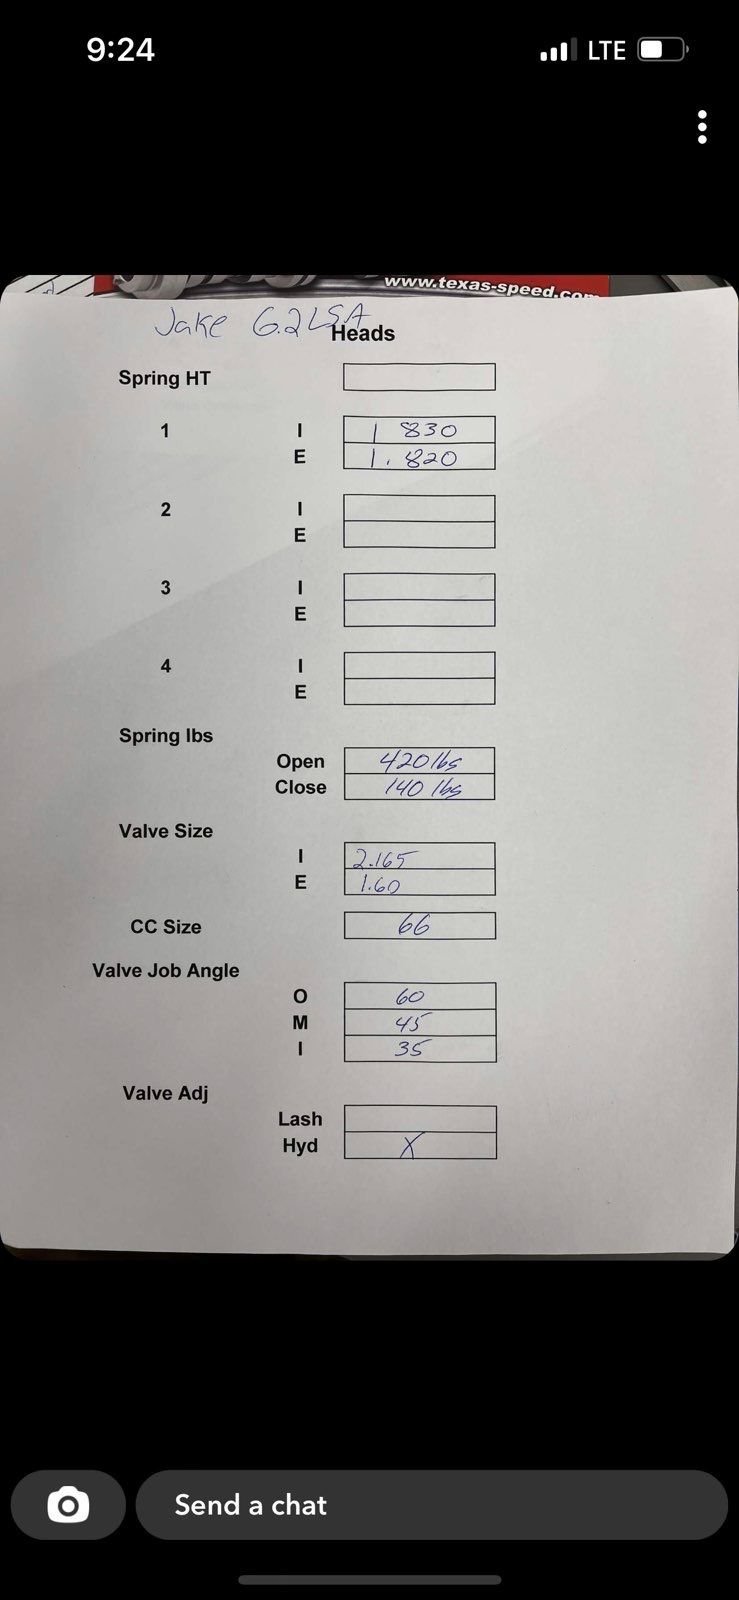 9:24 LTE
www.texas-speed.com
Jake 6.2 LSA
Heads
Spring HT
1 I 1 830
E 1.820
2 I
E
3 I
E
4 I
E
Spring lbs
Open 420 lbs
Close 140 lbs
Valve Size
I 2.165
E 1.60
CC Size 66
Valve Job Angle
O 60
M 45
I 35
Valve Adj
Lash
Hyd X
Send a chat